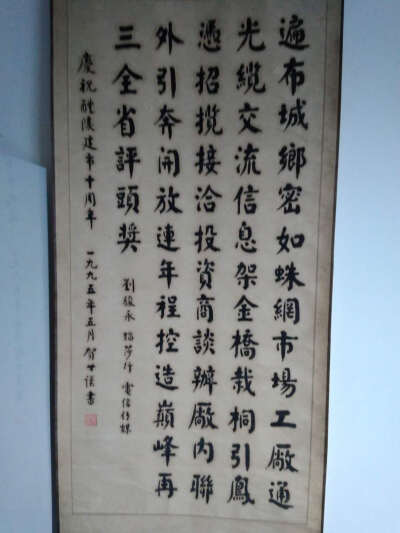 遍布城鄉密如蛛網市場工廠通
光纜交流信息架金橋栽桐引鳳
憑招攬接洽投資商談辦廠内聯
外引奔開放連年程控造巔峰再
三全省評頭獎
劉緩永 踏莎行 電信传媒
慶祝醴陵建市十周年 一九九五年五月 賀 書